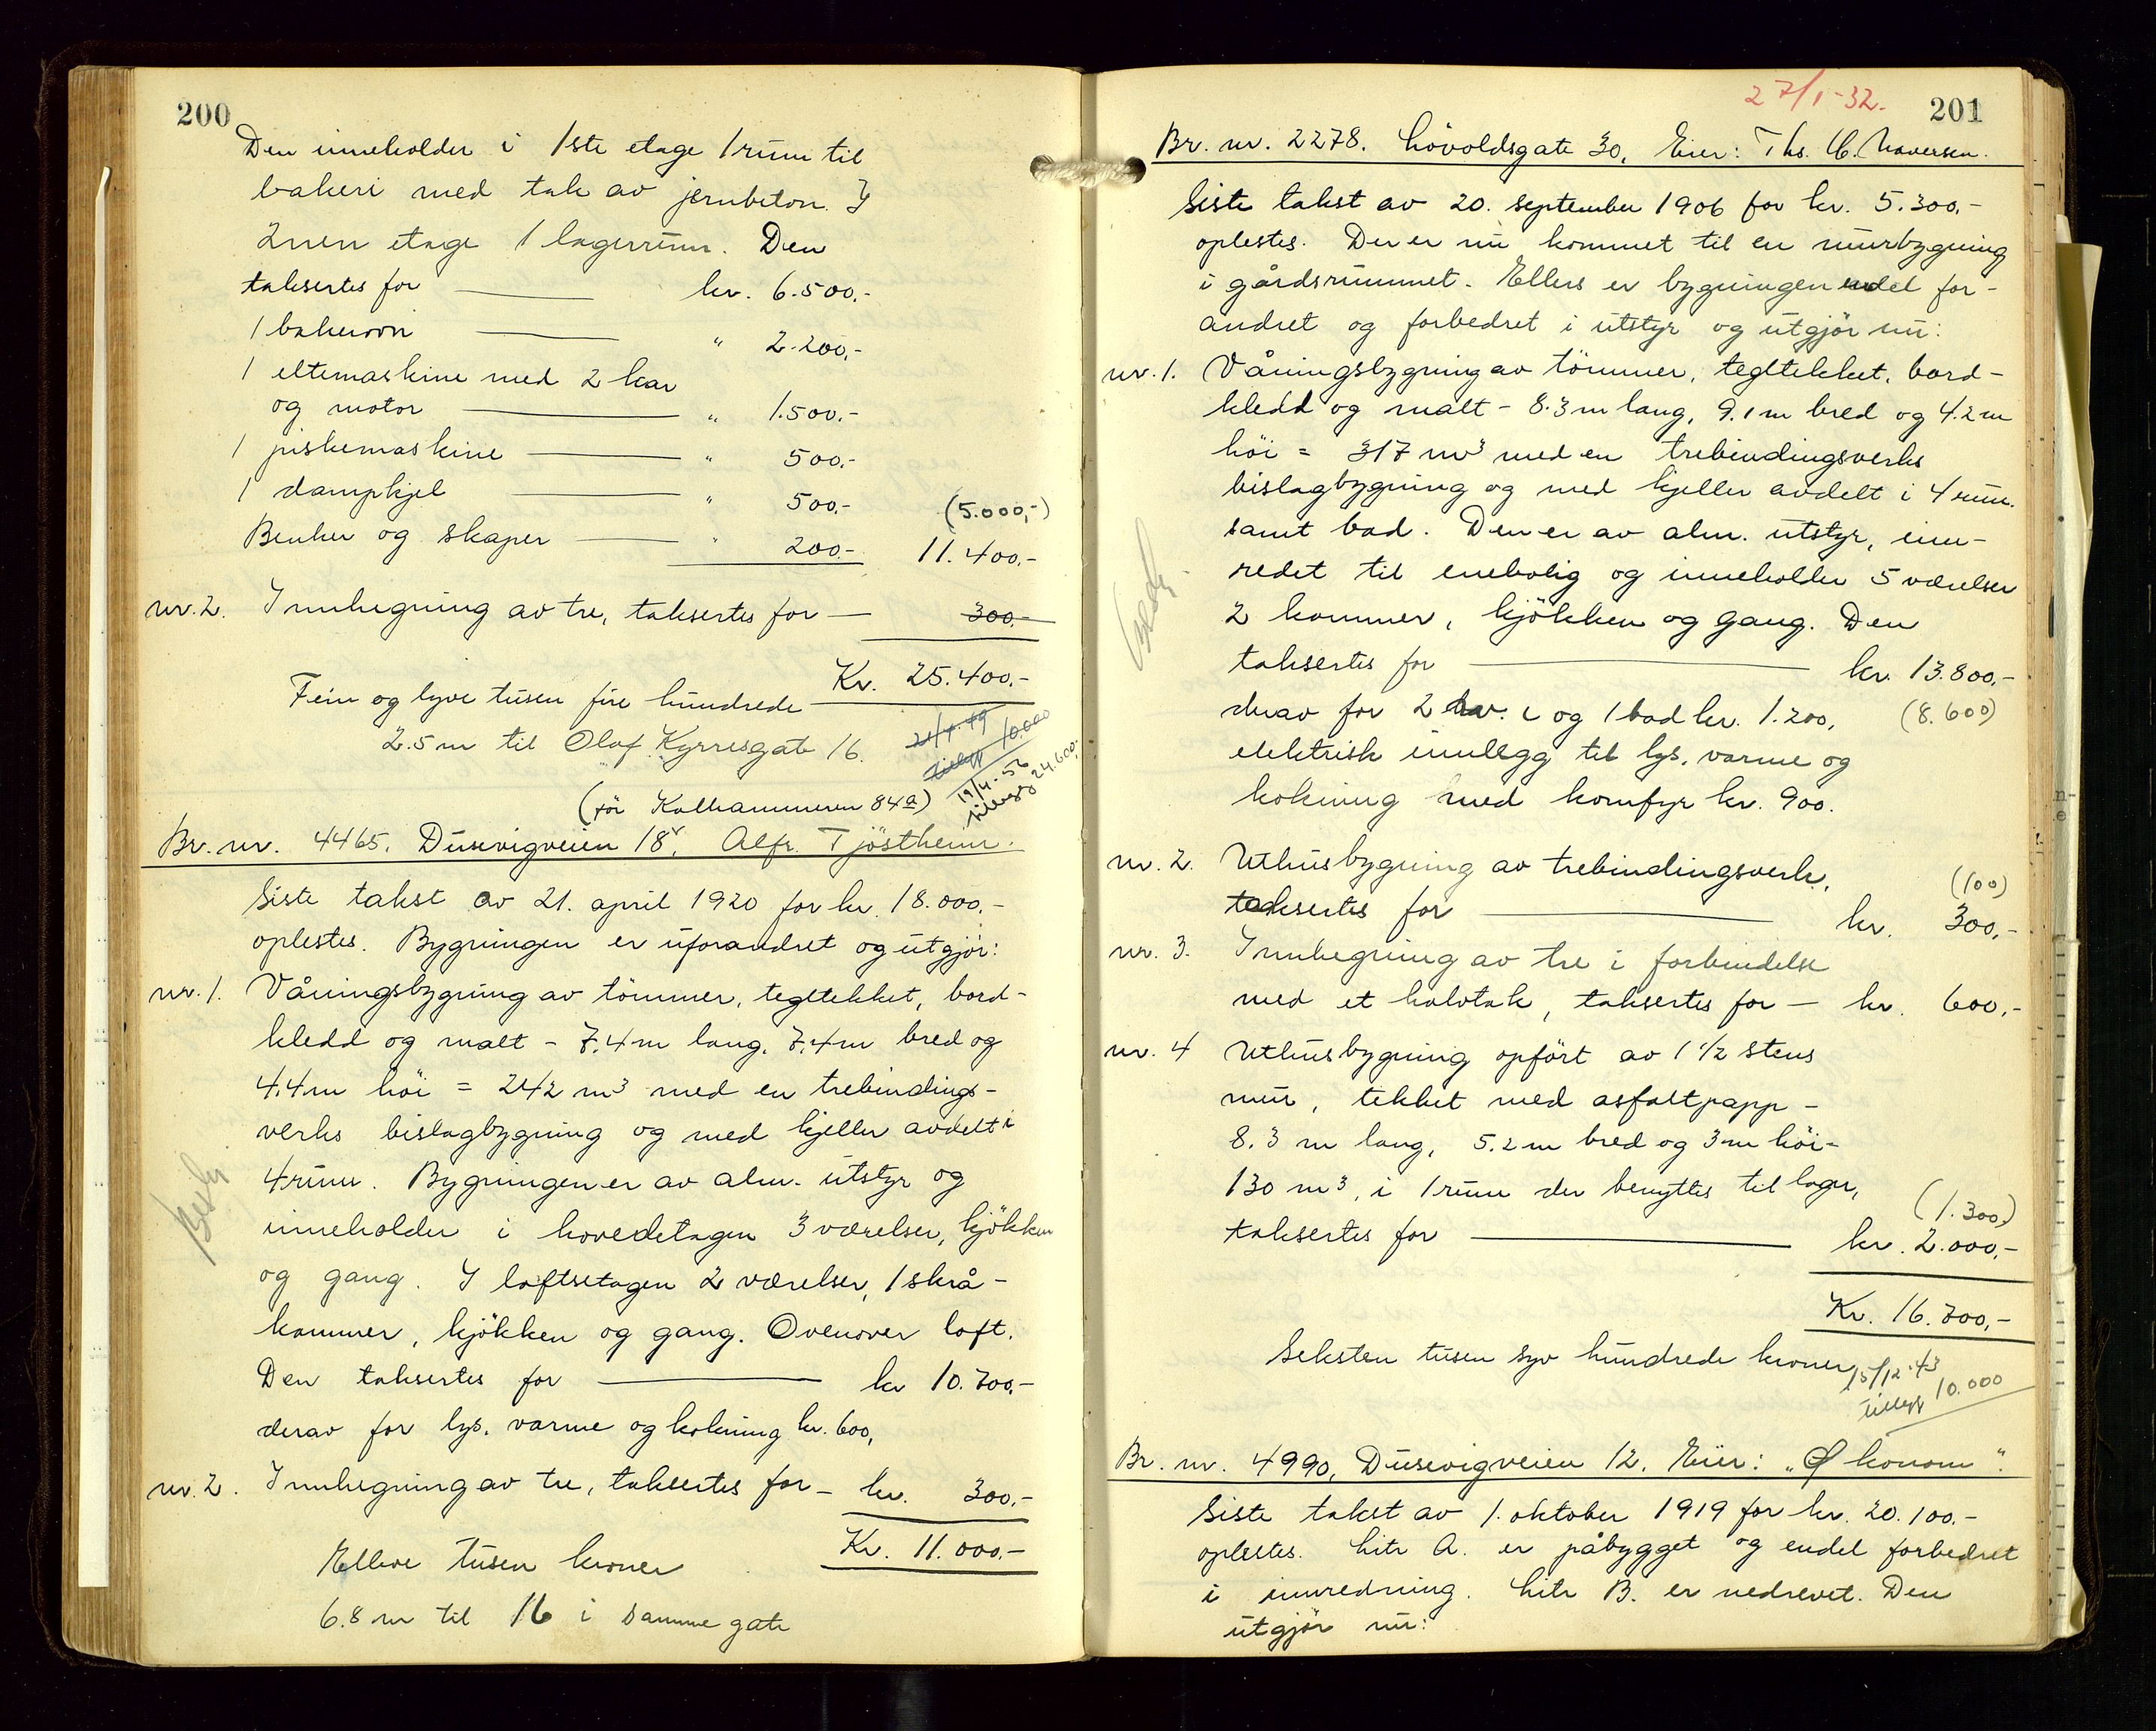 200
Den inneholder i 1ste etage 1 rum til
bakeri med tak av jernbeton. I
2nen etage 1 lagerrum. Den
taksertes for — kr. 6.500,-
1 bakerovn — " 2.200,-
1 eltemaskine med 2 kar
og motor — " 1.500,-
1 piskemaskine — " 500,-
1 dampkjel — " 500,-
(5.000,-)
Benker og skaper — " 200,- 11.400,-
nr. 2. Innhegning av tre, taksertes for — 300,-
Kr. 25.400,-
Fem og tyve tusen fire hundrede
2.5 m til Olaf Kyrresgate 16.
Tillegg 10.000
19/4.56
tillegg 24.600,-
(før Kalhammeren 84a)
Br. nr. 4465. Dusevigveien 18, Alfr. Tjöstheim.
Siste takst av 21. april 1920 for kr. 18.000,-
oplestes. Bygningen er uforandret og utgjör:
nr. 1. Våningsbygning av tömmer, tegltekket, bord-
kledd og malt - 7,4 m lang, 7,4 m bred og
4,4 m höi = 242 m³ med en trebindings-
verks bislagbygning og med kjeller avdelt i
4 rum. Bygningen er av alm. utstyr og
inneholder i hovedetagen 3 værelser, kjökken
og gang. I loftsetagen 2 værelser, 1 skrå-
kammer, kjökken og gang. Ovenover loft.
Den taksertes for — kr 10.700,-
derav for lys, varme og kokning kr. 600,
nr. 2. Innhegning av tre, taksertes for - kr. 300,-
Kr. 11.000,-
Elleve tusen kroner
6.8 m til 16 i samme gate
27/1-32.
201
Br. nr. 2278. Lövoldsgate 30, Eier: Ths.
Siste takst av 20. september 1906 for kr. 5.300,-
oplestes. Der er nu kommet til en murbygning
i gårdsrummet. Ellers er bygningen endel for-
andret og forbedret i utstyr og utgjör nu:
nr. 1. Våningsbygning av tömmer, tegltekket, bord-
kledd og malt - 8.3 m lang, 9.1 m bred og 4.2 m
höi = 317 m³ med en trebindingsverks
bislagbygning og med kjeller avdelt i 4 rum.
samt bad. Den er av alm. utstyr, inn-
redet til enebolig og inneholder 5 værelser
2 kammer, kjökken og gang. Den
taksertes for — kr. 13.800,-
derav for 2 w. c og 1 bad kr. 1.200, (8.600)
elektrisk innlegg til lys, varme og
kokning med komfyr kr. 900.
nr. 2. Uthusbygning av trebindingsverk,
(100)
taksertes for — kr. 300,-
nr. 3. Innhegning av tre i forbindelse
med et halvtak, taksertes for — kr. 600,-
nr. 4 Uthusbygning opfört av 1 1/2 stens
mur, tekket med asfaltpapp -
8.3 m lang, 5.2 m bred og 3 m höi =
130 m³, i 1 rum der benyttes til lager,
(1.300,)
taksertes for — kr. 2.000,-
Kr. 16.700,-
Seksten tusen syv hundrede kroner
15/12.43
Tillegg 10.000
Br. nr. 4990, Dusevigveien 12. Eier: "Økonom".
Siste takst av 1. oktober 1919 for kr. 20.100,-
oplestes. Litr A. er påbygget og endel forbedret
i innredning. Litr B. er nedrevet. Den
utgjör nu: